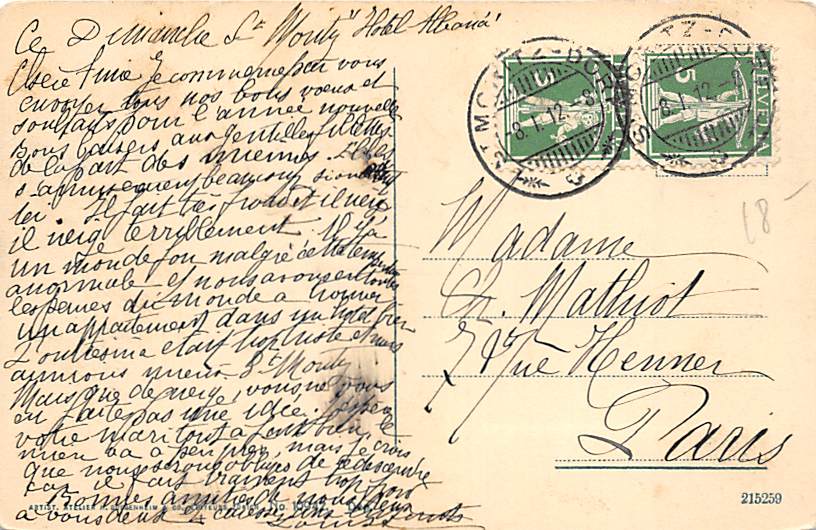 Ce Dimanche St Moritz "Hotel Albana"
Chère Amie Je commence par vous
envoyer tous nos bons voeux et
souhaits pour l'année nouvelle
Bons baisers aux gentilles fillettes
de la part des miennes. Elles
s'amusent beaucoup
ici. Il fait très froid et il
il neige terriblement. Il y a
un monde fou malgré cette
anormale et nous avons eu toutes
les peines du monde à trouver
un appartement dans un hotel bien
était trop triste et nous
aimons mieux St Moritz
Mais que de neige, vous ne vous
en faites pas une idée. J'espère
votre mari tout à fait bien, le
mien va à peu près, mais je crois
que nous serons obligés de redescendre
car il fait vraiment trop froid
Bonnes amitiés de nous deux
à vous deux et caresses
ST. MORITZ-DORF
8.I.12.-8
HELVETIA
5
5
18-
Madame
Ch. Mathiot
7 Rue Henner
Paris
ARTIST. ATELIER H. GUGGENHEIM & CO., EDITEURS, ZÜRICH, No.
215259